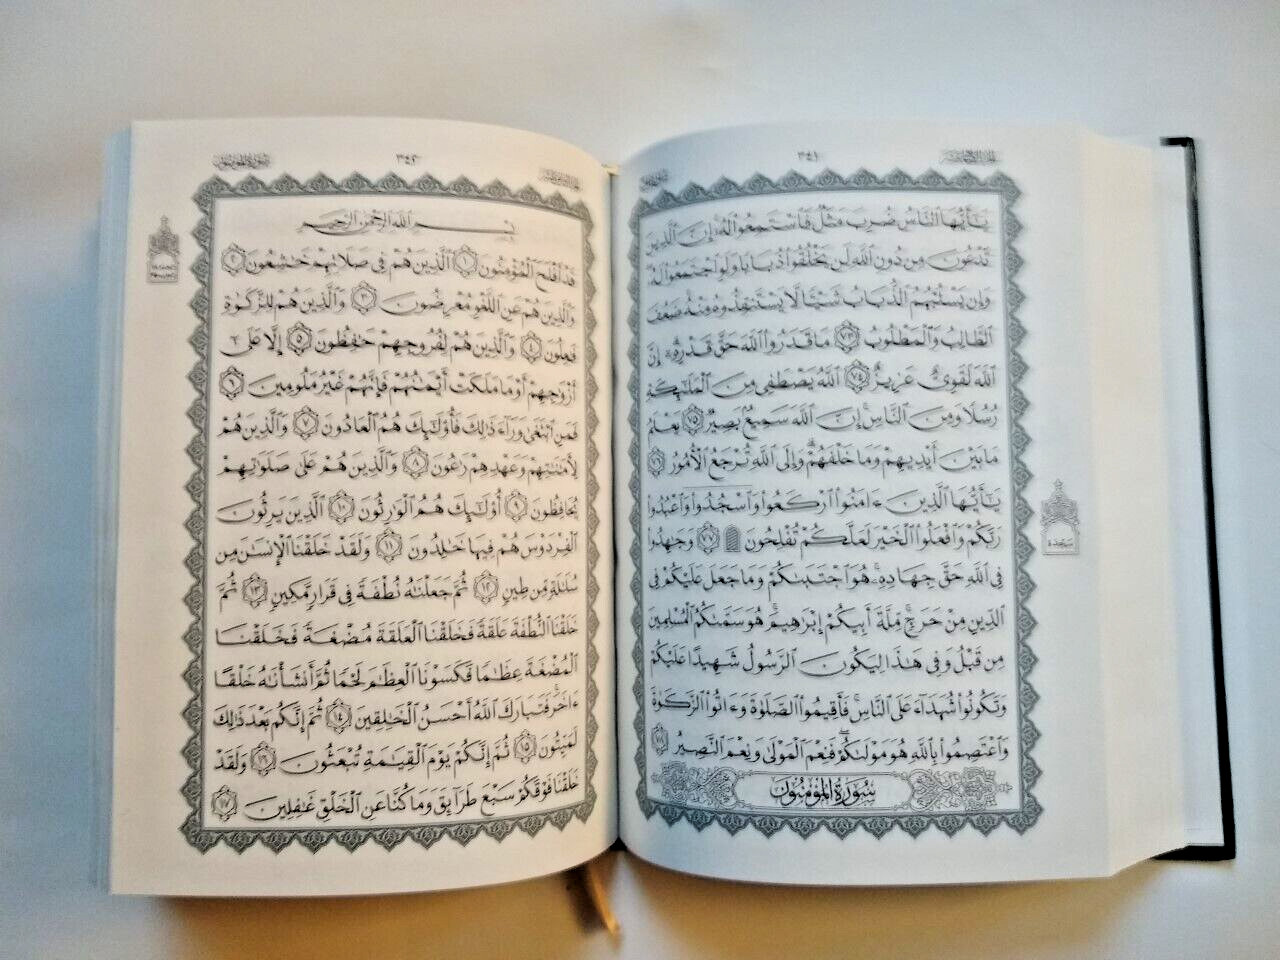 ٣٤١
يَٰٓأَيُّهَا ٱلنَّاسُ ضُرِبَ مَثَلٌ فَٱسْتَمِعُوا۟ لَهُۥٓ ۚ إِنَّ ٱلَّذِينَ
تَدْعُونَ مِن دُونِ ٱللَّهِ لَن يَخْلُقُوا۟ ذُبَابًا وَلَوِ ٱجْتَمَعُوا۟ لَهُۥ ۖ
وَإِن يَسْلُبْهُمُ ٱلذُّبَابُ شَيْـًٔا لَّا يَسْتَنقِذُوهُ مِنْهُ ۚ ضَعُفَ
ٱلطَّالِبُ وَٱلْمَطْلُوبُ ٧٣ مَا قَدَرُوا۟ ٱللَّهَ حَقَّ قَدْرِهِۦٓ ۗ إِنَّ
ٱللَّهَ لَقَوِىٌّ عَزِيزٌ ٧٤ ٱللَّهُ يَصْطَفِى مِنَ ٱلْمَلَٰٓئِكَةِ
رُسُلًا وَمِنَ ٱلنَّاسِ ۚ إِنَّ ٱللَّهَ سَمِيعٌۢ بَصِيرٌ ٧٥ يَعْلَمُ
مَا بَيْنَ أَيْدِيهِمْ وَمَا خَلْفَهُمْ ۗ وَإِلَى ٱللَّهِ تُرْجَعُ ٱلْأُمُورُ ٧٦
يَٰٓأَيُّهَا ٱلَّذِينَ ءَامَنُوا۟ ٱرْكَعُوا۟ وَٱسْجُدُوا۟ وَٱعْبُدُوا۟
رَبَّكُمْ وَٱفْعَلُوا۟ ٱلْخَيْرَ لَعَلَّكُمْ تُفْلِحُونَ ۩ ٧٧ وَجَٰهِدُوا۟
فِى ٱللَّهِ حَقَّ جِهَادِهِۦ ۚ هُوَ ٱجْتَبَىٰكُمْ وَمَا جَعَلَ عَلَيْكُمْ فِى
ٱلدِّينِ مِنْ حَرَجٍ ۚ مِّلَّةَ أَبِيكُمْ إِبْرَٰهِيمَ ۚ هُوَ سَمَّىٰكُمُ ٱلْمُسْلِمِينَ
مِن قَبْلُ وَفِى هَٰذَا لِيَكُونَ ٱلرَّسُولُ شَهِيدًا عَلَيْكُمْ
وَتَكُونُوا۟ شُهَدَآءَ عَلَى ٱلنَّاسِ ۚ فَأَقِيمُوا۟ ٱلصَّلَوٰةَ وَءَاتُوا۟ ٱلزَّكَوٰةَ
وَٱعْتَصِمُوا۟ بِٱللَّهِ هُوَ مَوْلَىٰكُمْ ۖ فَنِعْمَ ٱلْمَوْلَىٰ وَنِعْمَ ٱلنَّصِيرُ ٧٨
سُورَةُ المُؤْمِنُون
سجدة
٣٤٢
سُورَةُ المُؤْمِنُون
بِسْمِ ٱللَّهِ ٱلرَّحْمَٰنِ ٱلرَّحِيمِ
قَدْ أَفْلَحَ ٱلْمُؤْمِنُونَ ١ ٱلَّذِينَ هُمْ فِى صَلَاتِهِمْ خَٰشِعُونَ ٢
وَٱلَّذِينَ هُمْ عَنِ ٱللَّغْوِ مُعْرِضُونَ ٣ وَٱلَّذِينَ هُمْ لِلزَّكَوٰةِ
فَٰعِلُونَ ٤ وَٱلَّذِينَ هُمْ لِفُرُوجِهِمْ حَٰفِظُونَ ٥ إِلَّا عَلَىٰٓ
أَزْوَٰجِهِمْ أَوْ مَا مَلَكَتْ أَيْمَٰنُهُمْ فَإِنَّهُمْ غَيْرُ مَلُومِينَ ٦
فَمَنِ ٱبْتَغَىٰ وَرَآءَ ذَٰلِكَ فَأُو۟لَٰٓئِكَ هُمُ ٱلْعَادُونَ ٧ وَٱلَّذِينَ هُمْ
لِأَمَٰنَٰتِهِمْ وَعَهْدِهِمْ رَٰعُونَ ٨ وَٱلَّذِينَ هُمْ عَلَىٰ صَلَوَٰتِهِمْ
يُحَافِظُونَ ٩ أُو۟لَٰٓئِكَ هُمُ ٱلْوَٰرِثُونَ ١٠ ٱلَّذِينَ يَرِثُونَ
ٱلْفِرْدَوْسَ هُمْ فِيهَا خَٰلِدُونَ ١١ وَلَقَدْ خَلَقْنَا ٱلْإِنسَٰنَ مِن
سُلَٰلَةٍ مِّن طِينٍ ١٢ ثُمَّ جَعَلْنَٰهُ نُطْفَةً فِى قَرَارٍ مَّكِينٍ ١٣ ثُمَّ
خَلَقْنَا ٱلنُّطْفَةَ عَلَقَةً فَخَلَقْنَا ٱلْعَلَقَةَ مُضْغَةً فَخَلَقْنَا
ٱلْمُضْغَةَ عِظَٰمًا فَكَسَوْنَا ٱلْعِظَٰمَ لَحْمًا ثُمَّ أَنشَأْنَٰهُ خَلْقًا
ءَاخَرَ ۚ فَتَبَارَكَ ٱللَّهُ أَحْسَنُ ٱلْخَٰلِقِينَ ١٤ ثُمَّ إِنَّكُم بَعْدَ ذَٰلِكَ
لَمَيِّتُونَ ١٥ ثُمَّ إِنَّكُمْ يَوْمَ ٱلْقِيَٰمَةِ تُبْعَثُونَ ١٦ وَلَقَدْ
خَلَقْنَا فَوْقَكُمْ سَبْعَ طَرَآئِقَ وَمَا كُنَّا عَنِ ٱلْخَلْقِ غَٰفِلِينَ ١٧